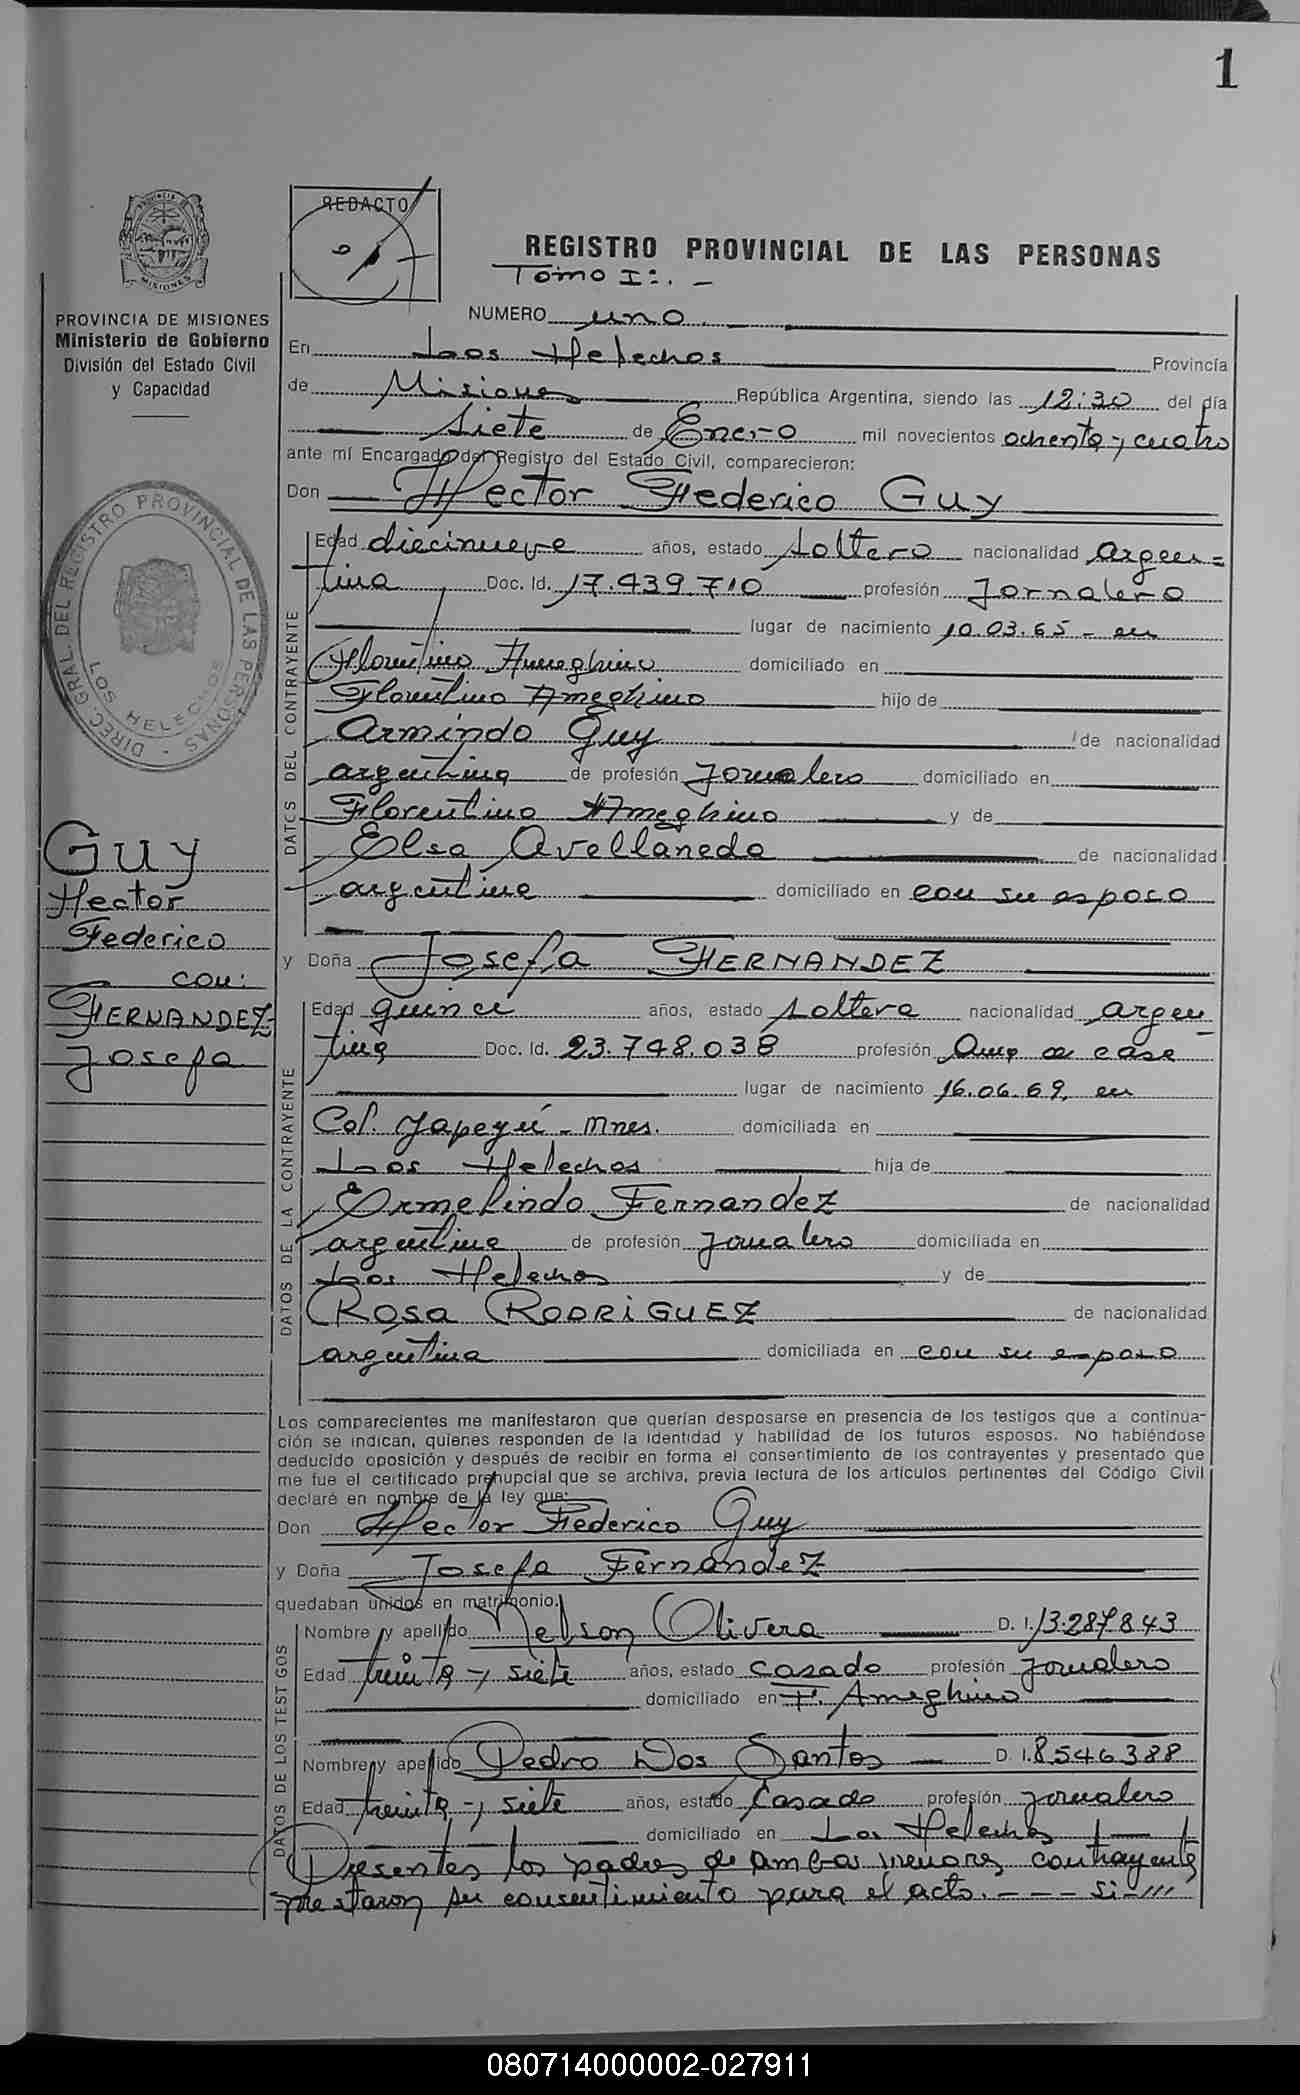 1
REDACTO
REGISTRO PROVINCIAL DE LAS PERSONAS
Tomo I:. -
PROVINCIA DE MISIONES
Ministerio de Gobierno
División del Estado Civil
y Capacidad
DIREC. GRAL. DEL REGISTRO PROVINCIAL DE LAS PERSONAS - LOS HELECHOS
GUY
Hector
Federico
con:
FERNANDEZ
Josefa
NUMERO uno.
En Los Helechos Provincia
de Misiones República Argentina, siendo las 12:30 del día
Siete de Enero mil novecientos ochenta y cuatro
ante mí Encargado del Registro del Estado Civil, comparecieron:
Don Hector Federico Guy
DATOS DEL CONTRAYENTE
Edad diecinueve años, estado soltero nacionalidad argen=
tina Doc. Id. 17.439.710 profesión Jornalero
lugar de nacimiento 10.03.65 - en
Florentino Ameghino domiciliado en
Florentino Ameghino hijo de
Armindo Guy de nacionalidad
argentina de profesión Jornalero domiciliado en
Florentino Ameghino y de
Elsa Avellaneda de nacionalidad
argentina domiciliado en con su esposo
y Doña Josefa FERNANDEZ
DATOS DE LA CONTRAYENTE
Edad quince años, estado soltera nacionalidad argen
tina Doc. Id. 23.748.038 profesión Ama de casa
lugar de nacimiento 16.06.69, en
Col. Yapeyú - Mnes. domiciliada en
Los Helechos hija de
Ermelindo Fernandez de nacionalidad
argentina de profesión Jornalero domiciliada en
Los Helechos y de
ROSA RODRIGUEZ de nacionalidad
argentina domiciliada en con su esposo
Los comparecientes me manifestaron que querían desposarse en presencia de los testigos que a continua-
ción se indican, quienes responden de la identidad y habilidad de los futuros esposos. No habiéndose
deducido oposición y después de recibir en forma el consentimiento de los contrayentes y presentado que
me fue el certificado prenupcial que se archiva, previa lectura de los artículos pertinentes del Código Civil
declaré en nombre de la ley que:
Don Hector Federico Guy
y Doña Josefa Fernandez
quedaban unidos en matrimonio.
DATOS DE LOS TESTIGOS
Nombre y apellido Nelson Olivera D. I. 13.287.843
Edad treinta y siete años, estado casado profesión Jornalero
domiciliado en F. Ameghino
Nombre y apellido Pedro Dos Santos D. I. 8.546.388
Edad treinta y siete años, estado Casado profesión jornalero
domiciliado en Los Helechos
Presentes los padres de ambos menores contrayentes
prestaron su consentimiento para el acto. - - - si-///
080714000002-027911